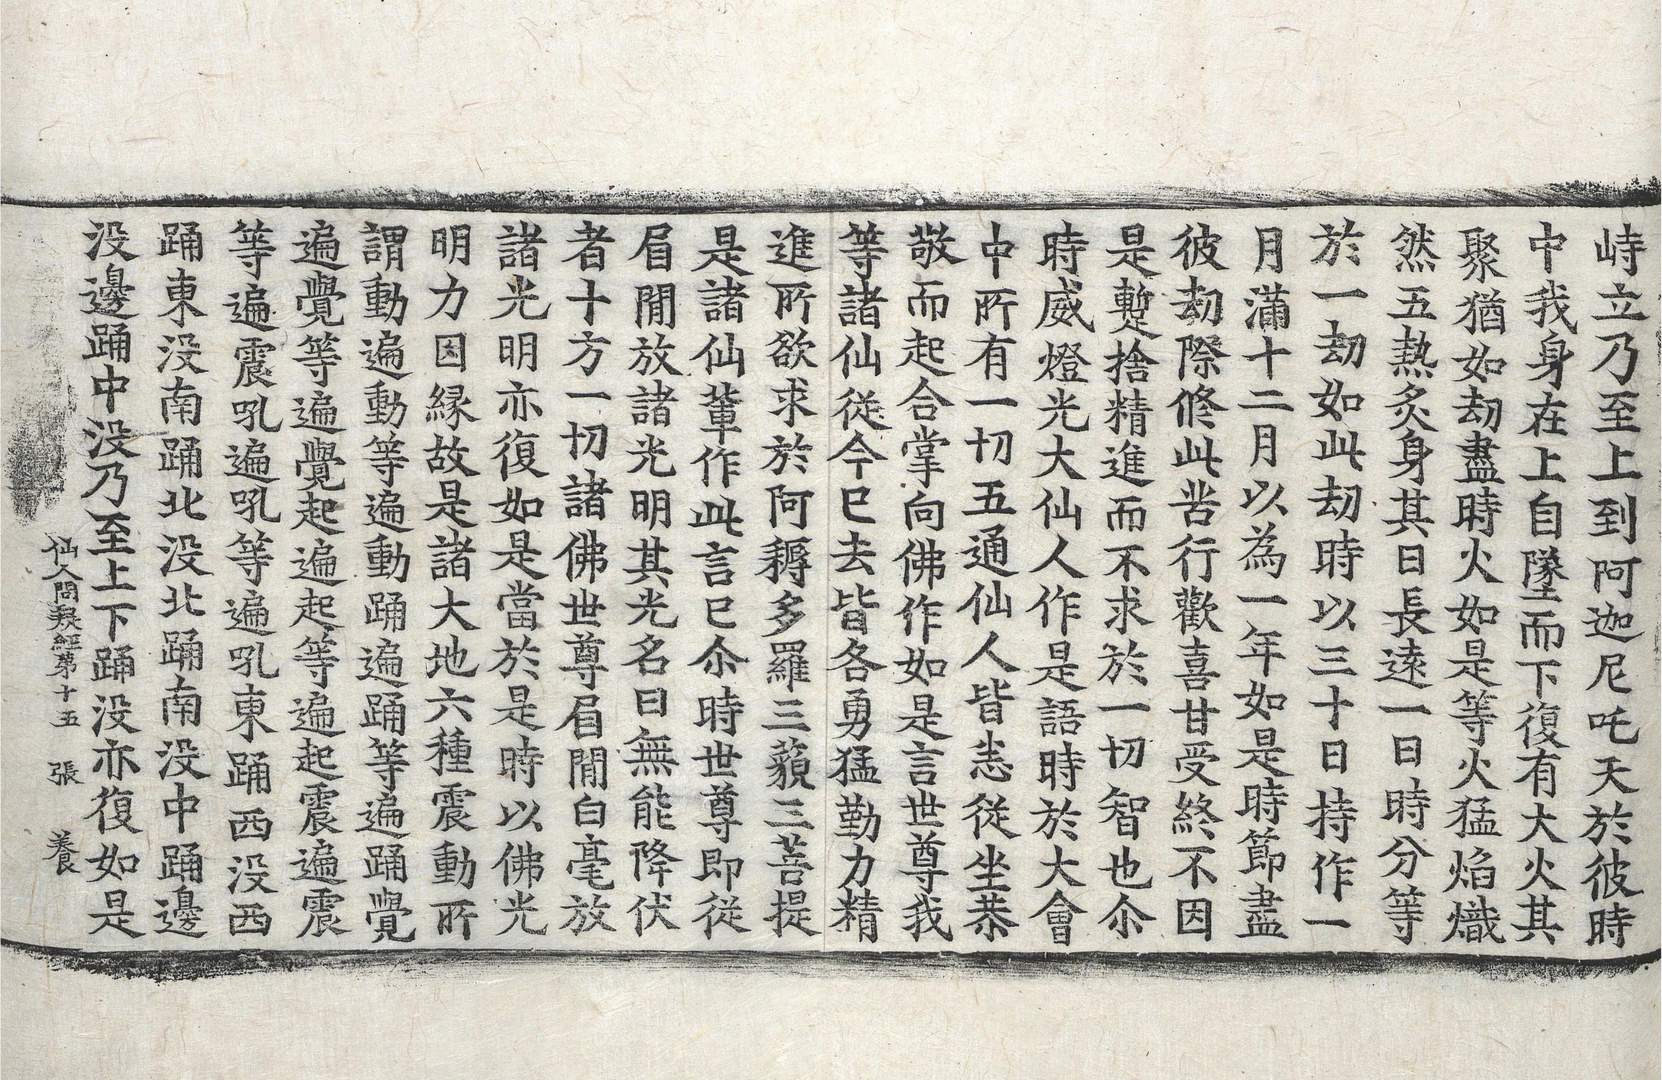 峙立乃至上到阿迦尼吒天於彼時
中我身在上自墜而下復有大火其
聚猶如劫盡時火如是等火猛焰熾
然五熱炙身其日長遠一日時分等
於一劫如此劫時以三十日持作一
月滿十二月以為一年如是時節盡
彼劫際修此苦行歡喜甘受終不因
是蹔捨精進而不求於一切智也尒
時威燈光大仙人作是語時於大會
中所有一切五通仙人皆悉從坐恭
敬而起合掌向佛作如是言世尊我
等諸仙從今已去皆各勇猛勤力精
進所欲求於阿耨多羅三藐三菩提
是諸仙輩作此言已尒時世尊即從
眉閒放諸光明其光名曰無能降伏
者十方一切諸佛世尊眉閒白毫放
諸光明亦復如是當於是時以佛光
明力因緣故是諸大地六種震動所
謂動遍動等遍動踊遍踊等遍踊覺
遍覺等遍覺起遍起等遍起震遍震
等遍震吼遍吼等遍吼東踊西没西
踊東没南踊北没北踊南没中踊邊
没邊踊中没乃至上下踊没亦復如是
仙人問疑經第十五 張 養